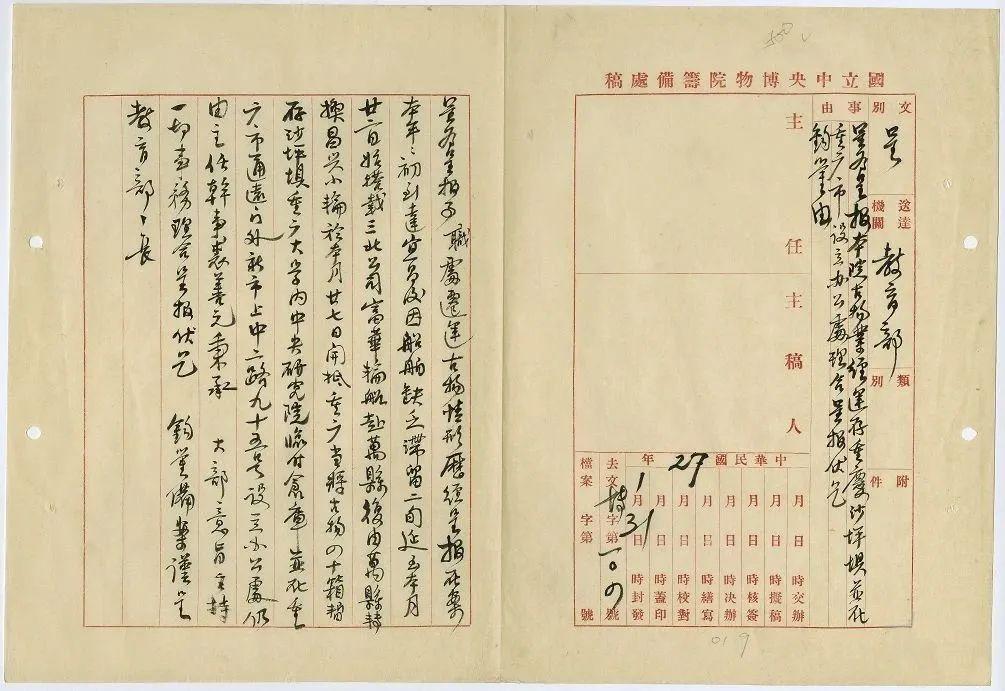 國立中央博物院籌備處稿
文別 呈
送達機關 教育部
類別
附件
事由
呈為呈報本院古物業經運存重慶沙坪垻並在
重慶市設立辦公處理合呈報伏乞
鈞鑒由
主任
主稿人
中華民國27年
月 日 時交辦
月 日 時擬稿
月 日 時核簽
月 日 時決辦
月 日 時繕寫
月 日 時校對
月 日 時蓋印
1月31日 時封發
去文博字第一〇四號
檔案 字第 號
呈為呈報事職處遷運古物情形歷經呈報在案
本年、初到達宜昌後因船舶缺乏滯留二旬延至本月
廿二日始搭載三北公司富華輪船赴萬縣後由萬縣轉
換昌興小輪於本月廿七日開抵重慶當將古物四十箱暫
存沙坪垻重慶大學內中央研究院臨時倉庫並在重
慶市通遠門外新市上中二路九十五號設立辦公處仍
由主任幹事裘善元秉承 大部意旨主持
一切事務理合呈報伏乞 鈞鑒備案謹呈
教育部、長
019